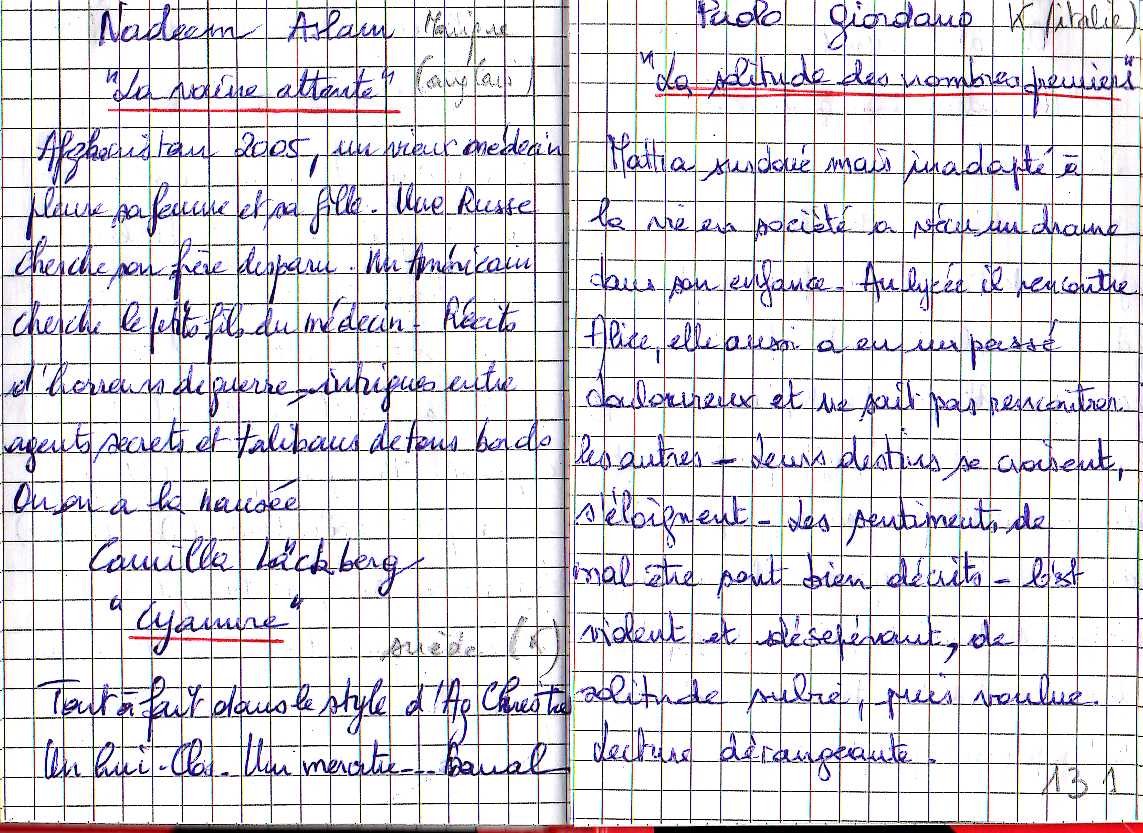 Nadeem Aslam
"La vaine attente" (anglais)
Afghanistan 2005, un vieux médecin
pleure sa femme et sa fille. Une Russe
cherche son frère disparu. Un Américain
cherche le petits fils du médecin - Récits
d'horreurs de guerre - intrigues entre
agents secrets et talibans de tous bords
On en a la nausée
Camilla Läckberg
"Cyanure"
suède (K)
Tout à fait dans le style d'Ag Christie
Un hui-Clos. Un meurtre... Banal
Paolo Giordano K (italie)
"La solitude des nombres premiers"
Mattia surdoué mais inadapté à
la vie en société a vécu un drame
dans son enfance - Au lycée il rencontre
Alice, elle aussi a eu un passé
douloureux et ne sait pas rencontrer
les autres - Leurs destins se croisent,
s'éloignent - Les sentiments de
mal être sont bien décrits - C'est
violent et désespérant, de
solitude subie, puis voulue.
Lecture dérangeante.
131